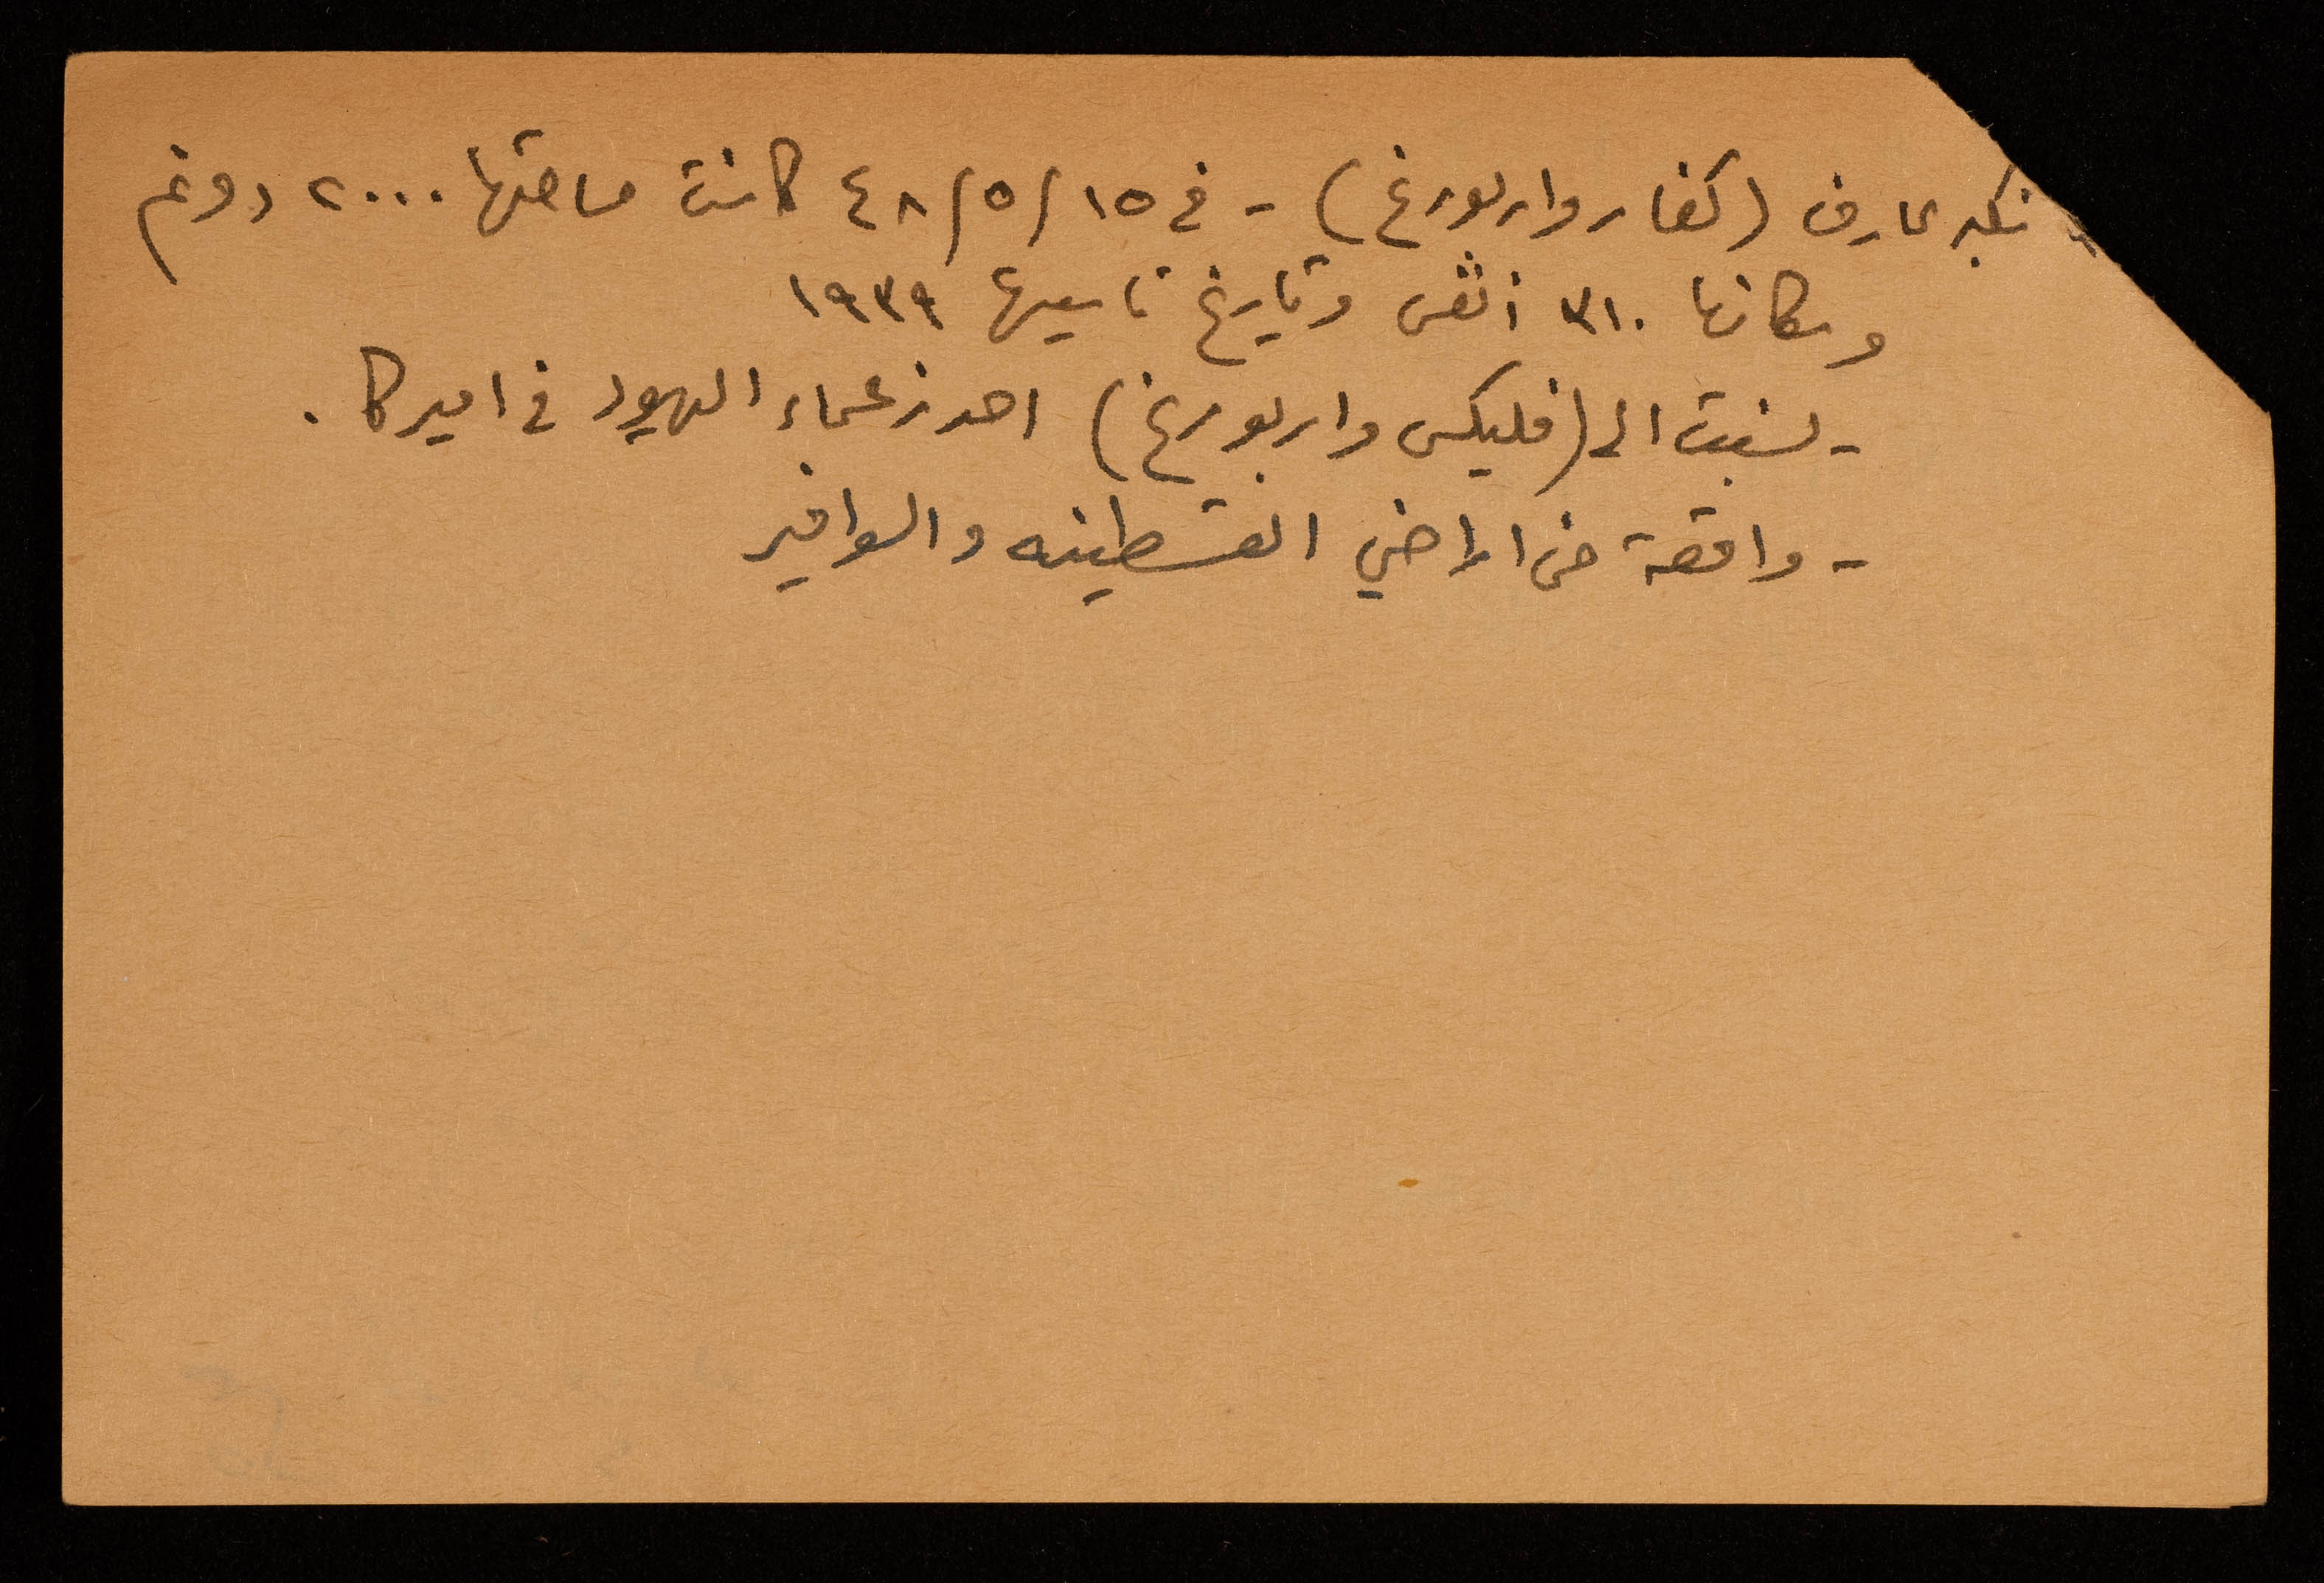 نكبه عارف (كفار واربورغ) - في ٤٨/٥/١٥ كانت مساحتها ٢٠٠٠ دونم
وسكانها ٣١٠ انفس وتاريخ تاسيسها ١٩٣٩
- نسبت الى (فليكس واربورغ) احد زعماء اليهود في اميركا .
- واقعة في اراضي القسطينه والسوافير